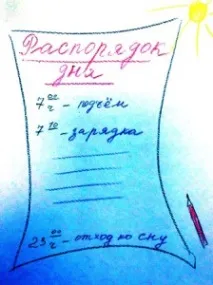 Распорядок
дня
7 00 ч - подъём
7 10 - зарядка
23 00 ч - отход ко сну